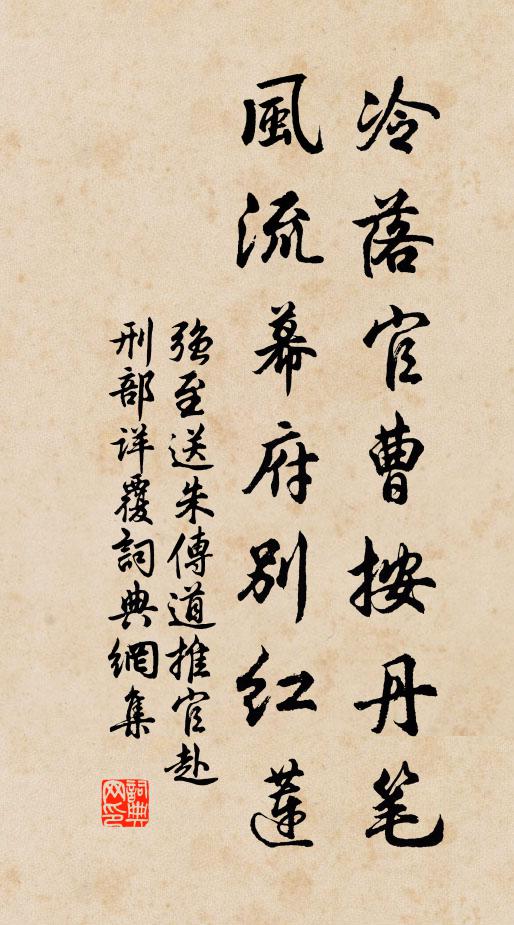 冷落官曹按丹笔
風流幕府別红蓮
强至送朱傳道推官赴
刑部详覆詞典網集
詞典网印